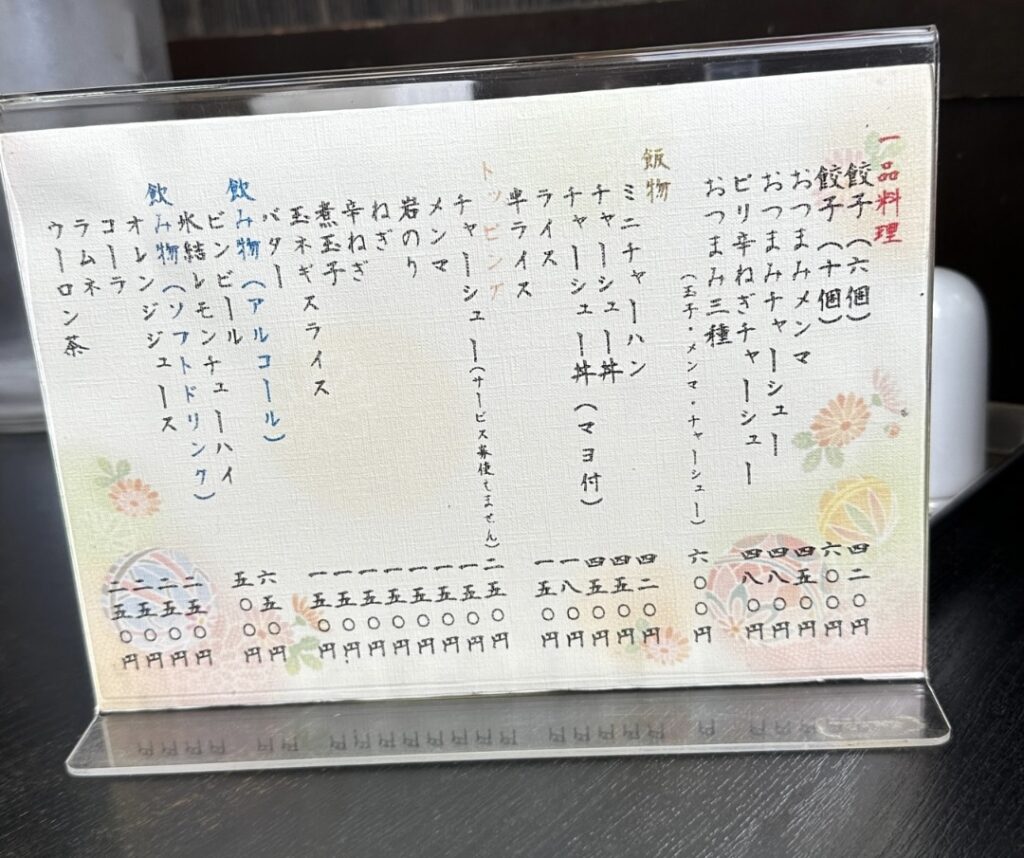 一品料理
餃子（六個） 四二〇円
餃子（十個） 六〇〇円
おつまみメンマ 四五〇円
おつまみチャーシュー 四八〇円
ピリ辛ねぎチャーシュー 四八〇円
おつまみ三種
（玉子・メンマ・チャーシュー） 六〇〇円
飯物
ミニチャーハン 四二〇円
チャーシュー丼 四五〇円
チャーシュー丼（マヨ付） 四五〇円
ライス 一八〇円
半ライス 一五〇円
トッピング
チャーシュー（サービス券使えません） 二五〇円
メンマ 一五〇円
岩のり 一五〇円
ねぎ 一五〇円
辛ねぎ 一五〇円
煮玉子 一五〇円
玉ネギスライス 一五〇円
バター 一五〇円
飲み物（アルコール）
ビンビール 六五〇円
氷結レモンチューハイ 五〇〇円
飲み物（ソフトドリンク）
オレンジジュース 二五〇円
コーラ 二五〇円
ラムネ 二五〇円
ウーロン茶 二五〇円